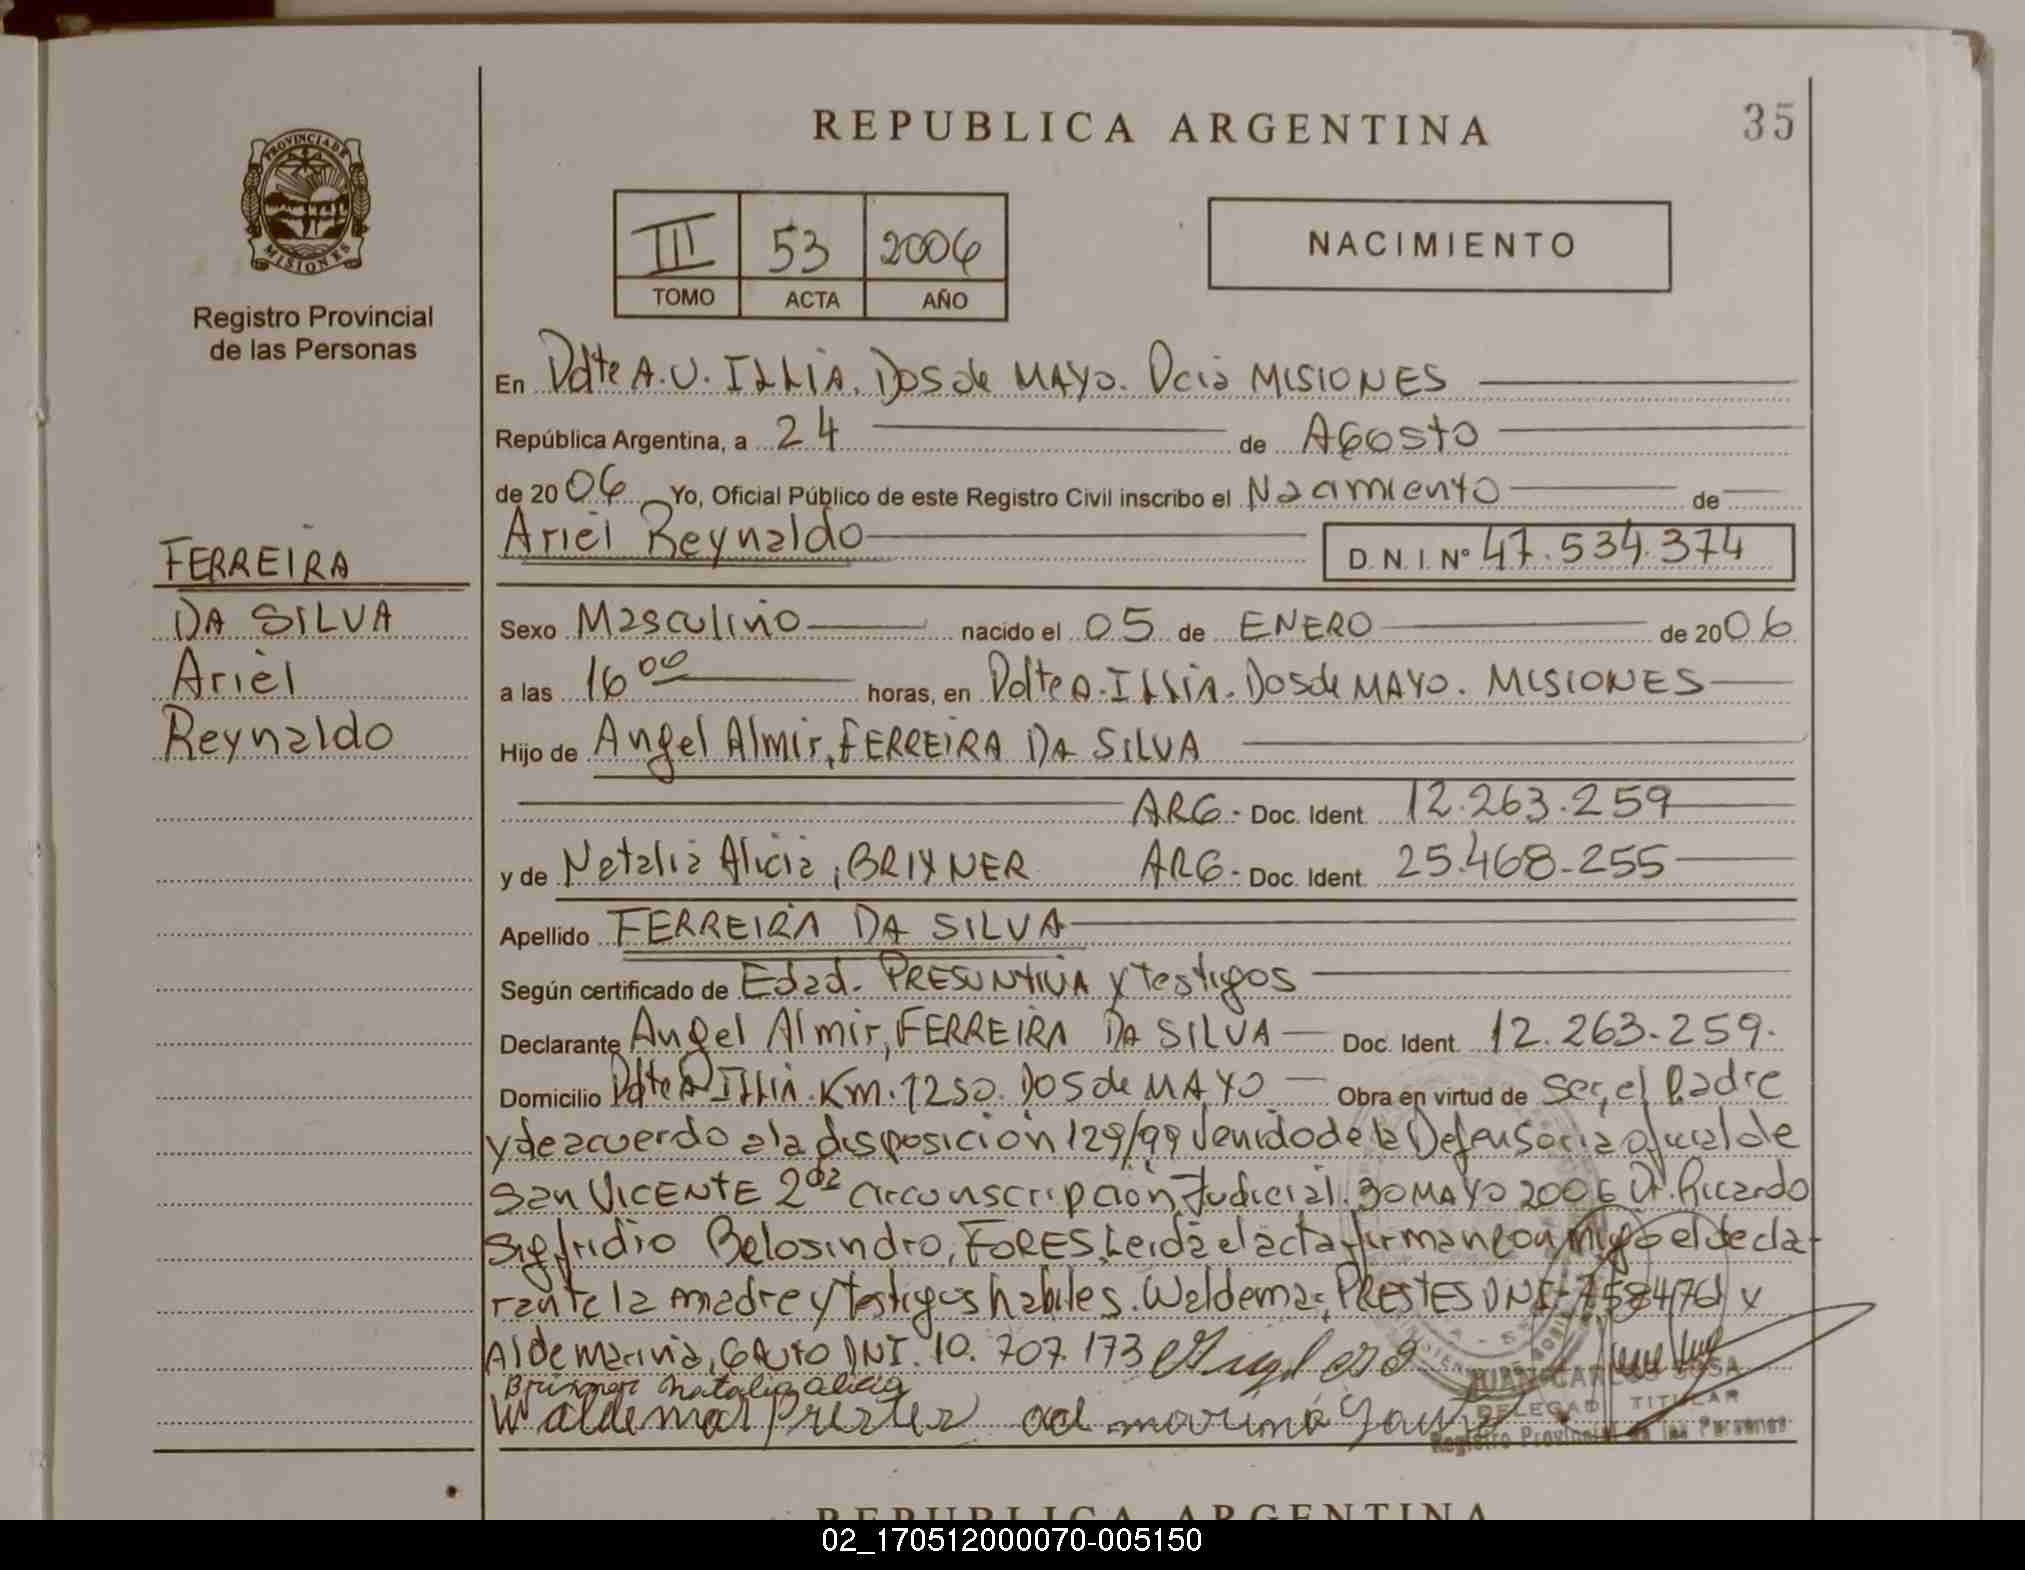 REPUBLICA ARGENTINA
35
PROVINCIA DE
MISIONES
Registro Provincial
de las Personas
III 53 2006
TOMO ACTA AÑO
NACIMIENTO
En Pdte A.U. ILLIA. Dos de MAYO. Pcia MISIONES
República Argentina, a 24 de AGosto
de 2006 Yo, Oficial Público de este Registro Civil inscribo el Nacimiento de
Ariel Reynaldo
D.N.I. Nº 47.534.374
FERREIRA
DA SILVA
Ariel
Reynaldo
Sexo Masculino nacido el 05 de ENERO de 2006
a las 16 00 horas, en Pdte A. ILLIA. Dos de MAYO. MISIONES
Hijo de Angel Almir, FERREIRA DA SILVA
ARG - Doc. Ident. 12.263.259
y de Natalia Alicia, BRIXNER ARG - Doc. Ident. 25.468-255
Apellido FERREIRA DA SILVA
Según certificado de Edad. PRESUNTIVA y testigos
Declarante Angel Almir, FERREIRA DA SILVA Doc. Ident. 12.263-259.
Domicilio Pdte A ILLIA. Km. 1250. Dos de MAYO Obra en virtud de Ser, el Padre
y de acuerdo a la disposición 129/99 venido de la Defensoria oficial de
San VICENTE 2da circunscripción Judicial. 30 MAYO 2006 Dr. Riccardo
Sigfridio Belosindro, FORES, Leida el acta firman conmigo el decla-
rante la madre y testigos habiles. Waldemar, PRESTES DNI 7584761 y
Aldemarina, GAUTO DNI. 10.707.173
Brixner Natalia alicia
Waldemar Prestes
JUAN CARLOS SOSA
DELEGADO TITULAR
Registro Provincial de las Personas
REPUBLICA ARGENTINA
02_170512000070-005150